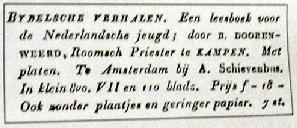 BYBELSCHE VERHALEN. Een leesboek voor
de Nederlandsche jeugd; door B. DOOREN-
WEERD, Roomsch Priester te KAMPEN. Met
platen. Te Amsterdam bij A. Schievenbus.
In klein 8vo. VII en 110 bladz. Prijs f - 18 -
Ook zonder plaatjes en geringer papier. 7 st.